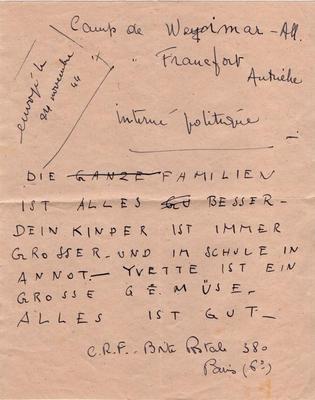 Camp de Weyoimar - All.
" Francfort
Autriche
envoyé le
24 novembre
44
interné politique
DIE GANZE FAMILIEN
IST ALLES GU BESSER -
DEIN KINDER IST IMMER
GROSSER - UND IM SCHULE IN
ANNOT. - YVETTE IST EIN
GROSSE GEMÜSE -
ALLES IST GUT -
C.R.F. - Bte Postale 380
Paris (6e)